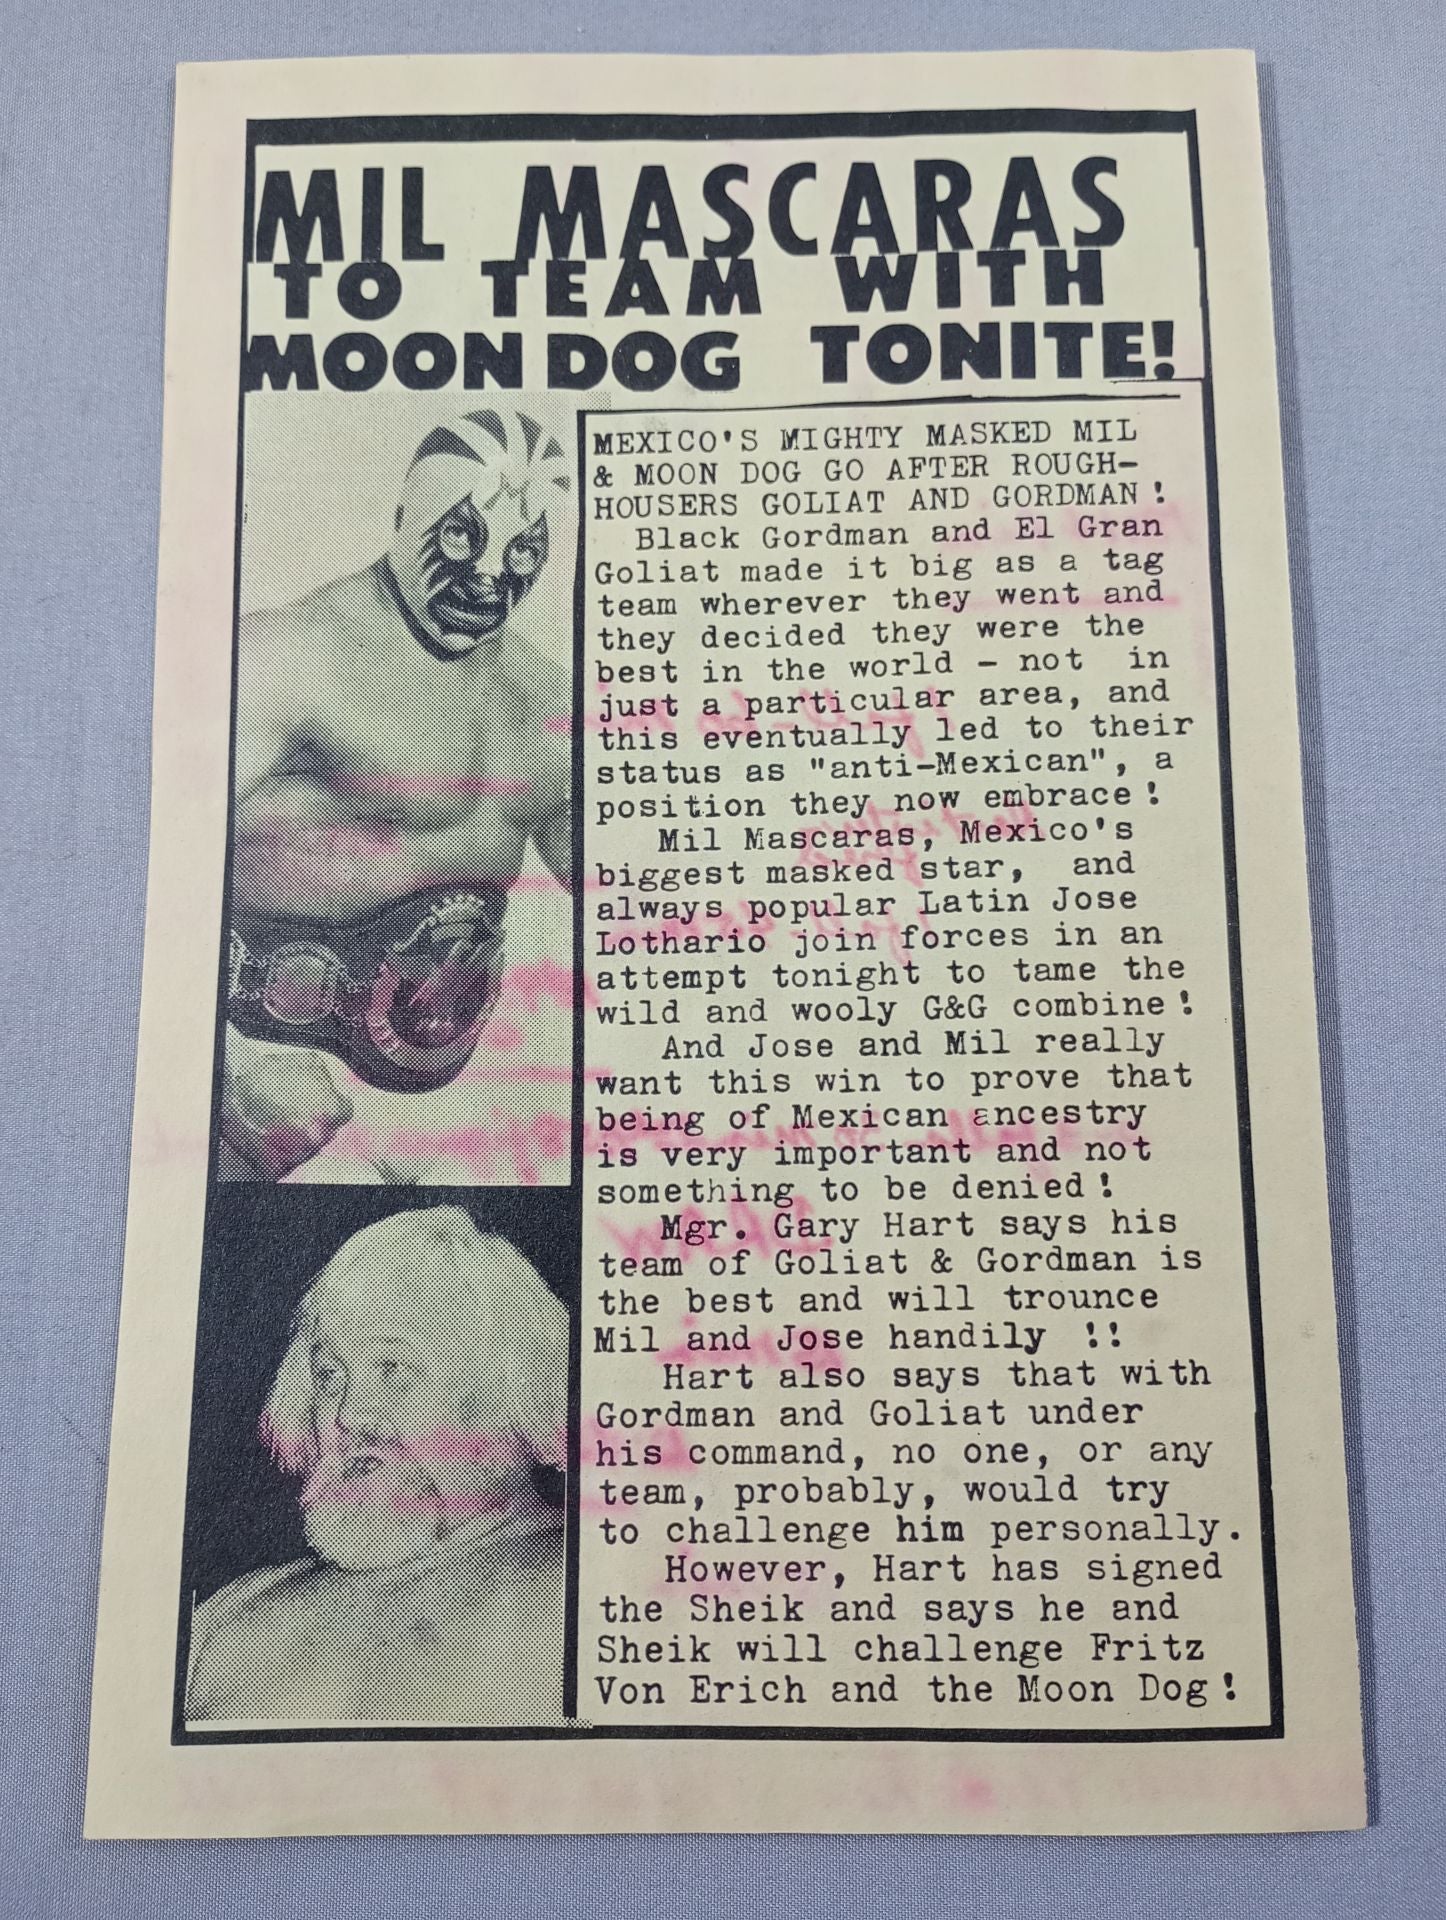 MIL MASCARAS
TO TEAM WITH
MOON DOG TONITE!
MEXICO'S MIGHTY MASKED MIL
& MOON DOG GO AFTER ROUGH-
HOUSERS GOLIAT AND GORDMAN!
Black Gordman and El Gran
Goliat made it big as a tag
team wherever they went and
they decided they were the
best in the world - not in
just a particular area, and
this eventually led to their
status as "anti-Mexican", a
position they now embrace!
Mil Mascaras, Mexico's
biggest masked star, and
always popular Latin Jose
Lothario join forces in an
attempt tonight to tame the
wild and wooly G&G combine!
And Jose and Mil really
want this win to prove that
being of Mexican ancestry
is very important and not
something to be denied!
Mgr. Gary Hart says his
team of Goliat & Gordman is
the best and will trounce
Mil and Jose handily !!
Hart also says that with
Gordman and Goliat under
his command, no one, or any
team, probably, would try
to challenge him personally.
However, Hart has signed
the Sheik and says he and
Sheik will challenge Fritz
Von Erich and the Moon Dog!